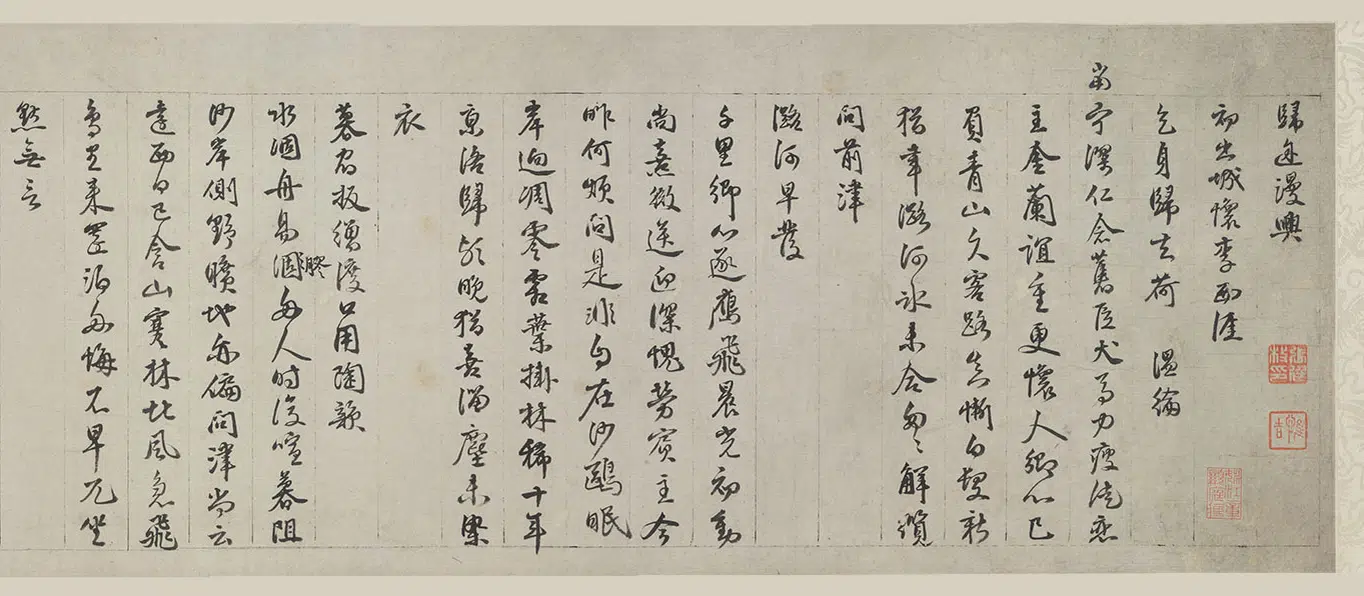 歸途漫興
初出城懷李西涯
乞身歸去荷 溫綸
當宁深仁念舊臣犬馬力疲徒戀
主金蘭誼重更懷人鄉心已
負青山久客路真慚白髮新
猶幸潞河冰未合匆匆解纜
問前津
潞河早發
千里鄉心逐鴈飛晨光初動
尚熹微送迎深愧勞賓主今
昨何煩問是非自在沙鷗眠
岸迥凋零霜葉掛林稀十年
京洛歸歟晚猶喜淄塵未染
衣
暮宿板繒渡口用陶韻
水涸舟易膠夜人時復喧暮阻
沙岸側野曠地亦偏問津尚云
遠西日已含山寒林北風急飛
鳥望來還泊舟悔不早兀坐
默無言